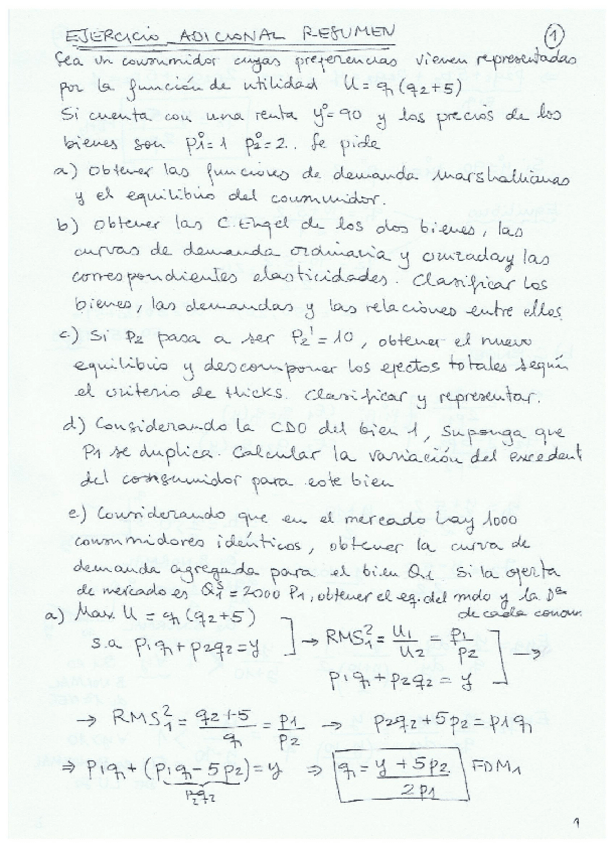 EJERCICIO ADICIONAL RESUMEN 1
Sea un consumidor cuyas preferencias vienen representadas
por la función de utilidad U = q1 (q2+5)
Si cuenta con una renta y°=90 y los precios de los
bienes son p1°=1 p2°=2. Se pide
a) Obtener las funciones de demanda marshallianas
y el equilibrio del consumidor.
b) Obtener las C. Engel de los dos bienes, las
curvas de demanda ordinaria y cruzada y las
correspondientes elasticidades. Clasificar los
bienes, las demandas y las relaciones entre ellos
c) Si P2 pasa a ser P2' = 10, obtener el nuevo
equilibrio y descomponer los efectos totales según
el criterio de Hicks. Clasificar y representar.
d) Considerando la CDO del bien 1, suponga que
P1 se duplica. Calcular la variación del excedent
del consumidor para este bien
e) Considerando que en el mercado hay 1000
consumidores idénticos, obtener la curva de
demanda agregada para el bien Q1. Si la oferta
de mercado es Q1^S = 2000 P1, obtener el eq. del mdo y la Dª
de cada consum.
a) Max. U = q1 (q2+5)
s.a p1q1 + p2q2 = y ] → RMS1^2 = U1/U2 = p1/p2
p1q1 + p2q2 = y ] →
→ RMS1^2 = (q2+5)/q1 = p1/p2 → p2q2 + 5p2 = p1q1
⇒ p1q1 + (p1q1 - 5p2) = y ⇒ q1 = (y + 5p2)/2p1 FDM1
p2q2
1